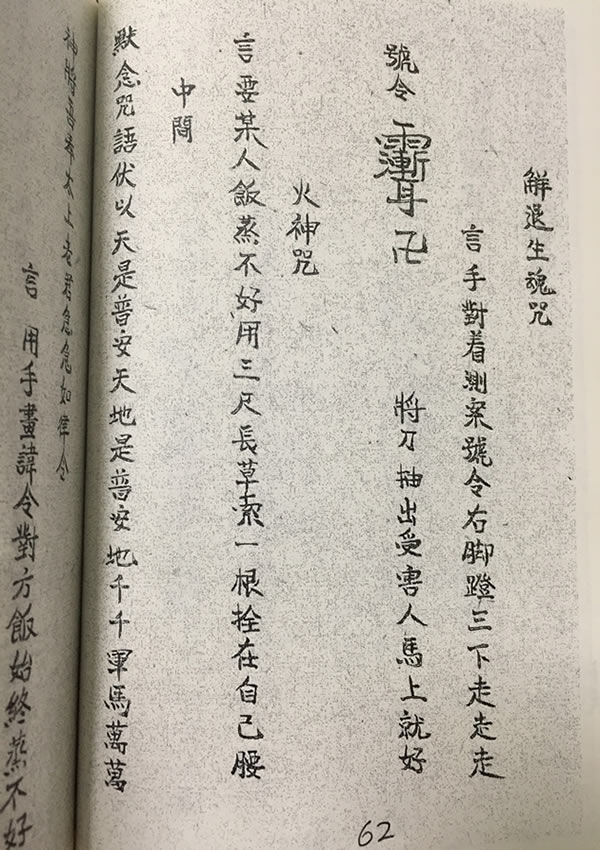 解退生魂咒
言手對着測案號令右脚蹬三下走走走
號令 卍 將刀抽出受害人馬上就好
火神咒
言要某人飯蒸不好用三尺長草索一根拴在自己腰
中間
默念咒語伏以天是普安天地是普安地千千軍馬萬萬
神將吾奉太上老君急急如律令
言用手畫諱令對方飯始終蒸不好
62